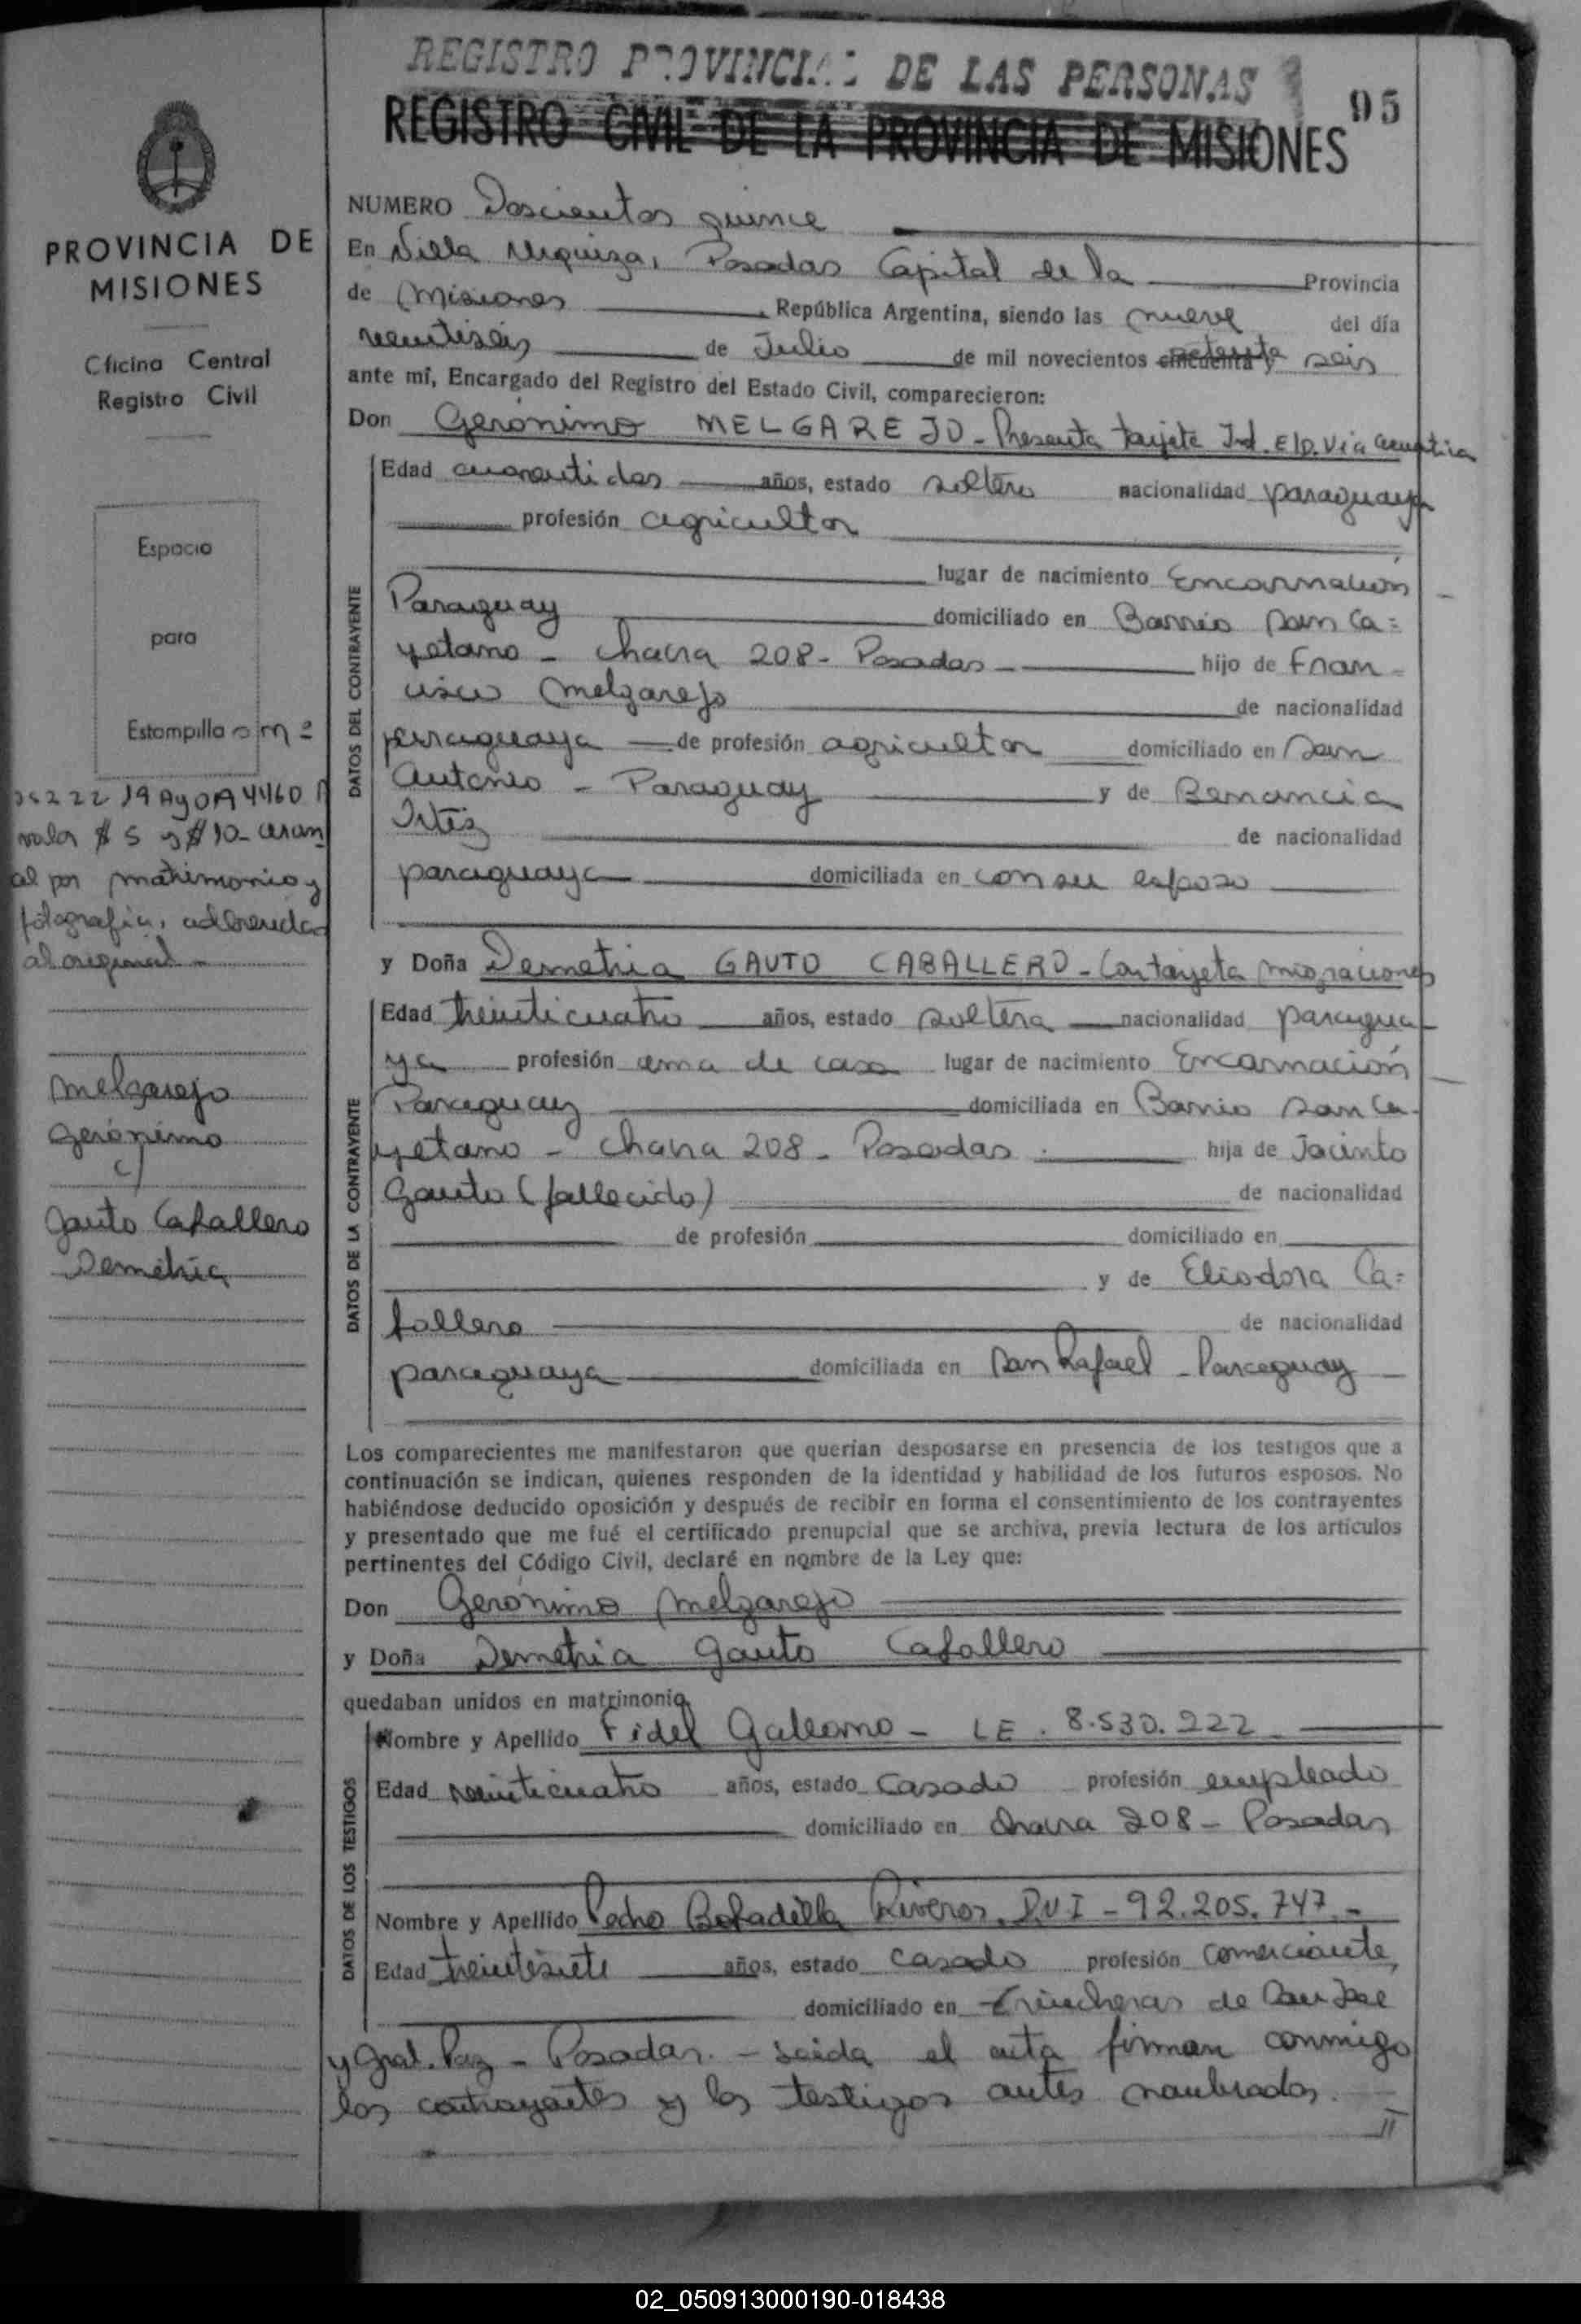 REGISTRO PROVINCIAL DE LAS PERSONAS
95
REGISTRO CIVIL DE LA PROVINCIA DE MISIONES
PROVINCIA DE
MISIONES
Oficina Central
Registro Civil
Espacio
para
Estampilla
valor $ 5 y $ 10-
al por matrimonio y
fotografía, adheridas
al original -
Melgarejo
Gerónimo
c/
Gauto Caballero
Demetria
NUMERO Doscientos quince
En Villa Urquiza, Posadas Capital de la Provincia
de Misiones República Argentina, siendo las nueve del día
veintiséis de Julio de mil novecientos cincuenta setenta y seis
ante mí, Encargado del Registro del Estado Civil, comparecieron:
Don Gerónimo MELGAREJO - Presenta tarjeta Ind. E/p. Vía acuática
DATOS DEL CONTRAYENTE
Edad cuarentidos años, estado soltero nacionalidad paraguaya
profesión agricultor
lugar de nacimiento Encarnación
Paraguay domiciliado en Barrio San Ca=
yetano - Chacra 208 - Posadas - hijo de Fran-
cisco Melgarejo de nacionalidad
paraguaya de profesión agricultor domiciliado en San
Antonio - Paraguay y de Benancia
Irtiz de nacionalidad
paraguaya domiciliada en con su esposo
y Doña Demetria GAUTO CABALLERO - Con tarjeta migraciones
DATOS DE LA CONTRAYENTE
Edad treinticuatro años, estado soltera nacionalidad paragua-
ya profesión ama de casa lugar de nacimiento Encarnación
Paraguay domiciliada en Barrio San Ca-
yetano - Chacra 208 - Posadas. hija de Jacinto
Gauto (fallecido) de nacionalidad
de profesión domiciliado en
y de Eliodora Ca=
ballero de nacionalidad
paraguaya domiciliada en San Rafael - Paraguay
Los comparecientes me manifestaron que querían desposarse en presencia de los testigos que a
continuación se indican, quienes responden de la identidad y habilidad de los futuros esposos. No
habiéndose deducido oposición y después de recibir en forma el consentimiento de los contrayentes
y presentado que me fué el certificado prenupcial que se archiva, previa lectura de los artículos
pertinentes del Código Civil, declaré en nombre de la Ley que:
Don Gerónimo Melgarejo
y Doña Demetria Gauto Caballero
quedaban unidos en matrimonio.
DATOS DE LOS TESTIGOS
Nombre y Apellido Fidel Galeano - LE. 8.530.222
Edad veinticuatro años, estado Casado profesión empleado
domiciliado en Chacra 208 - Posadas
Nombre y Apellido Pedro Bobadilla Riveros. D.N.I - 92.205.747.-
Edad treintisiete años, estado casado profesión comerciante,
domiciliado en Trincheras de San José
y Gral. Paz - Posadas. - Leída el acta firman conmigo
los contrayentes y los testigos antes nombrados.
//
02_050913000190-018438